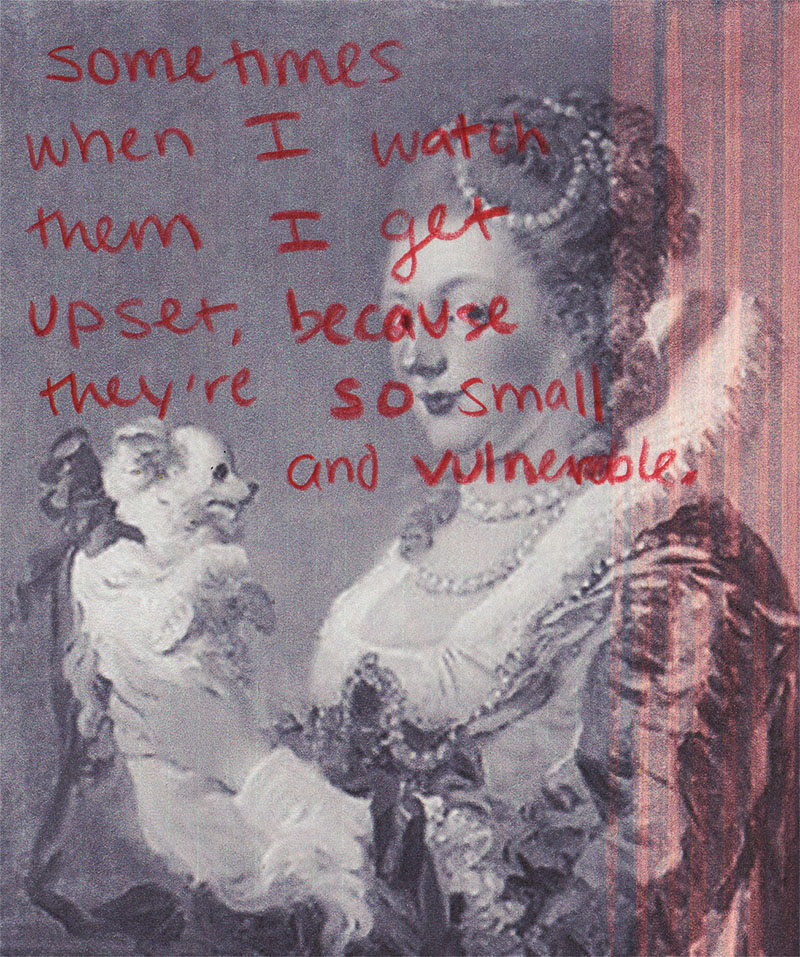 sometimes
when I watch
them I get
upset, because
they're so small
and vulnerable.